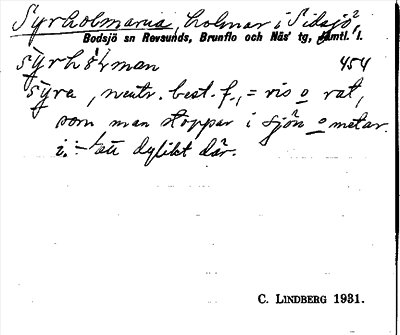 Syrholmarna, holmar i Sidsjö
Bodsjö sn Revsunds, Brunflo och Näs' tg, Jämtl. l.
454
syra, neutr. best. f., = ris o rat,
som man stoppar i sjön o metar
i. tätt dylikt där.
C. LINDBERG 1931.